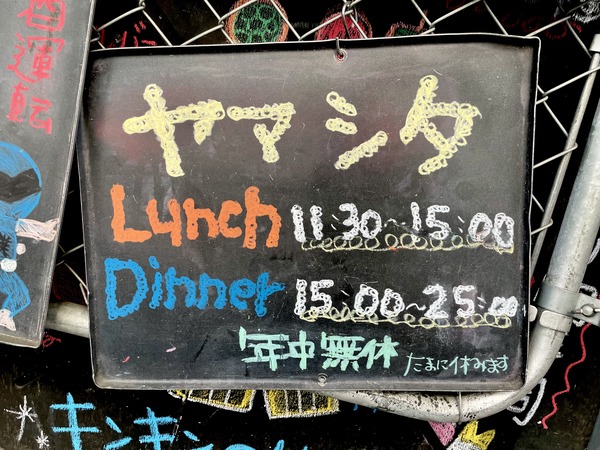 酒運転
ヤマシタ
Lunch 11:30~15:00
Dinner 15:00~25:00
年中無休 たまに休みます
キンキンの